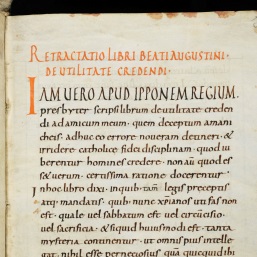 RETRACTATIO LIBRI BEATI AUGUSTINI·
DE UTILITATE CREDENDI·
IAM UERO APUD IPPONEM REGIUM·
presbyter scripsi librum de utilitate creden
di ad amicum meum· quem deceptum amani
cheis· adhuc eo errore noueram detineri· &
irridere catholicę fidei disciplinam· quod iu
berentur homines credere· non aū quod es
s& uerum· certissima ratione docerentur
In hoc libro dixi· inquib; tam legis preceptis
atq; mandatis· quib; nunc xpianos uti fas non
est· quale uel sabbatum est uel circūcisio·
uel sacrificia· & siquid huiusmodi est· tanta
mysteria continentur· ut omnis pius intelle
gat· nihil esse perniciosius quā quicquid ibi